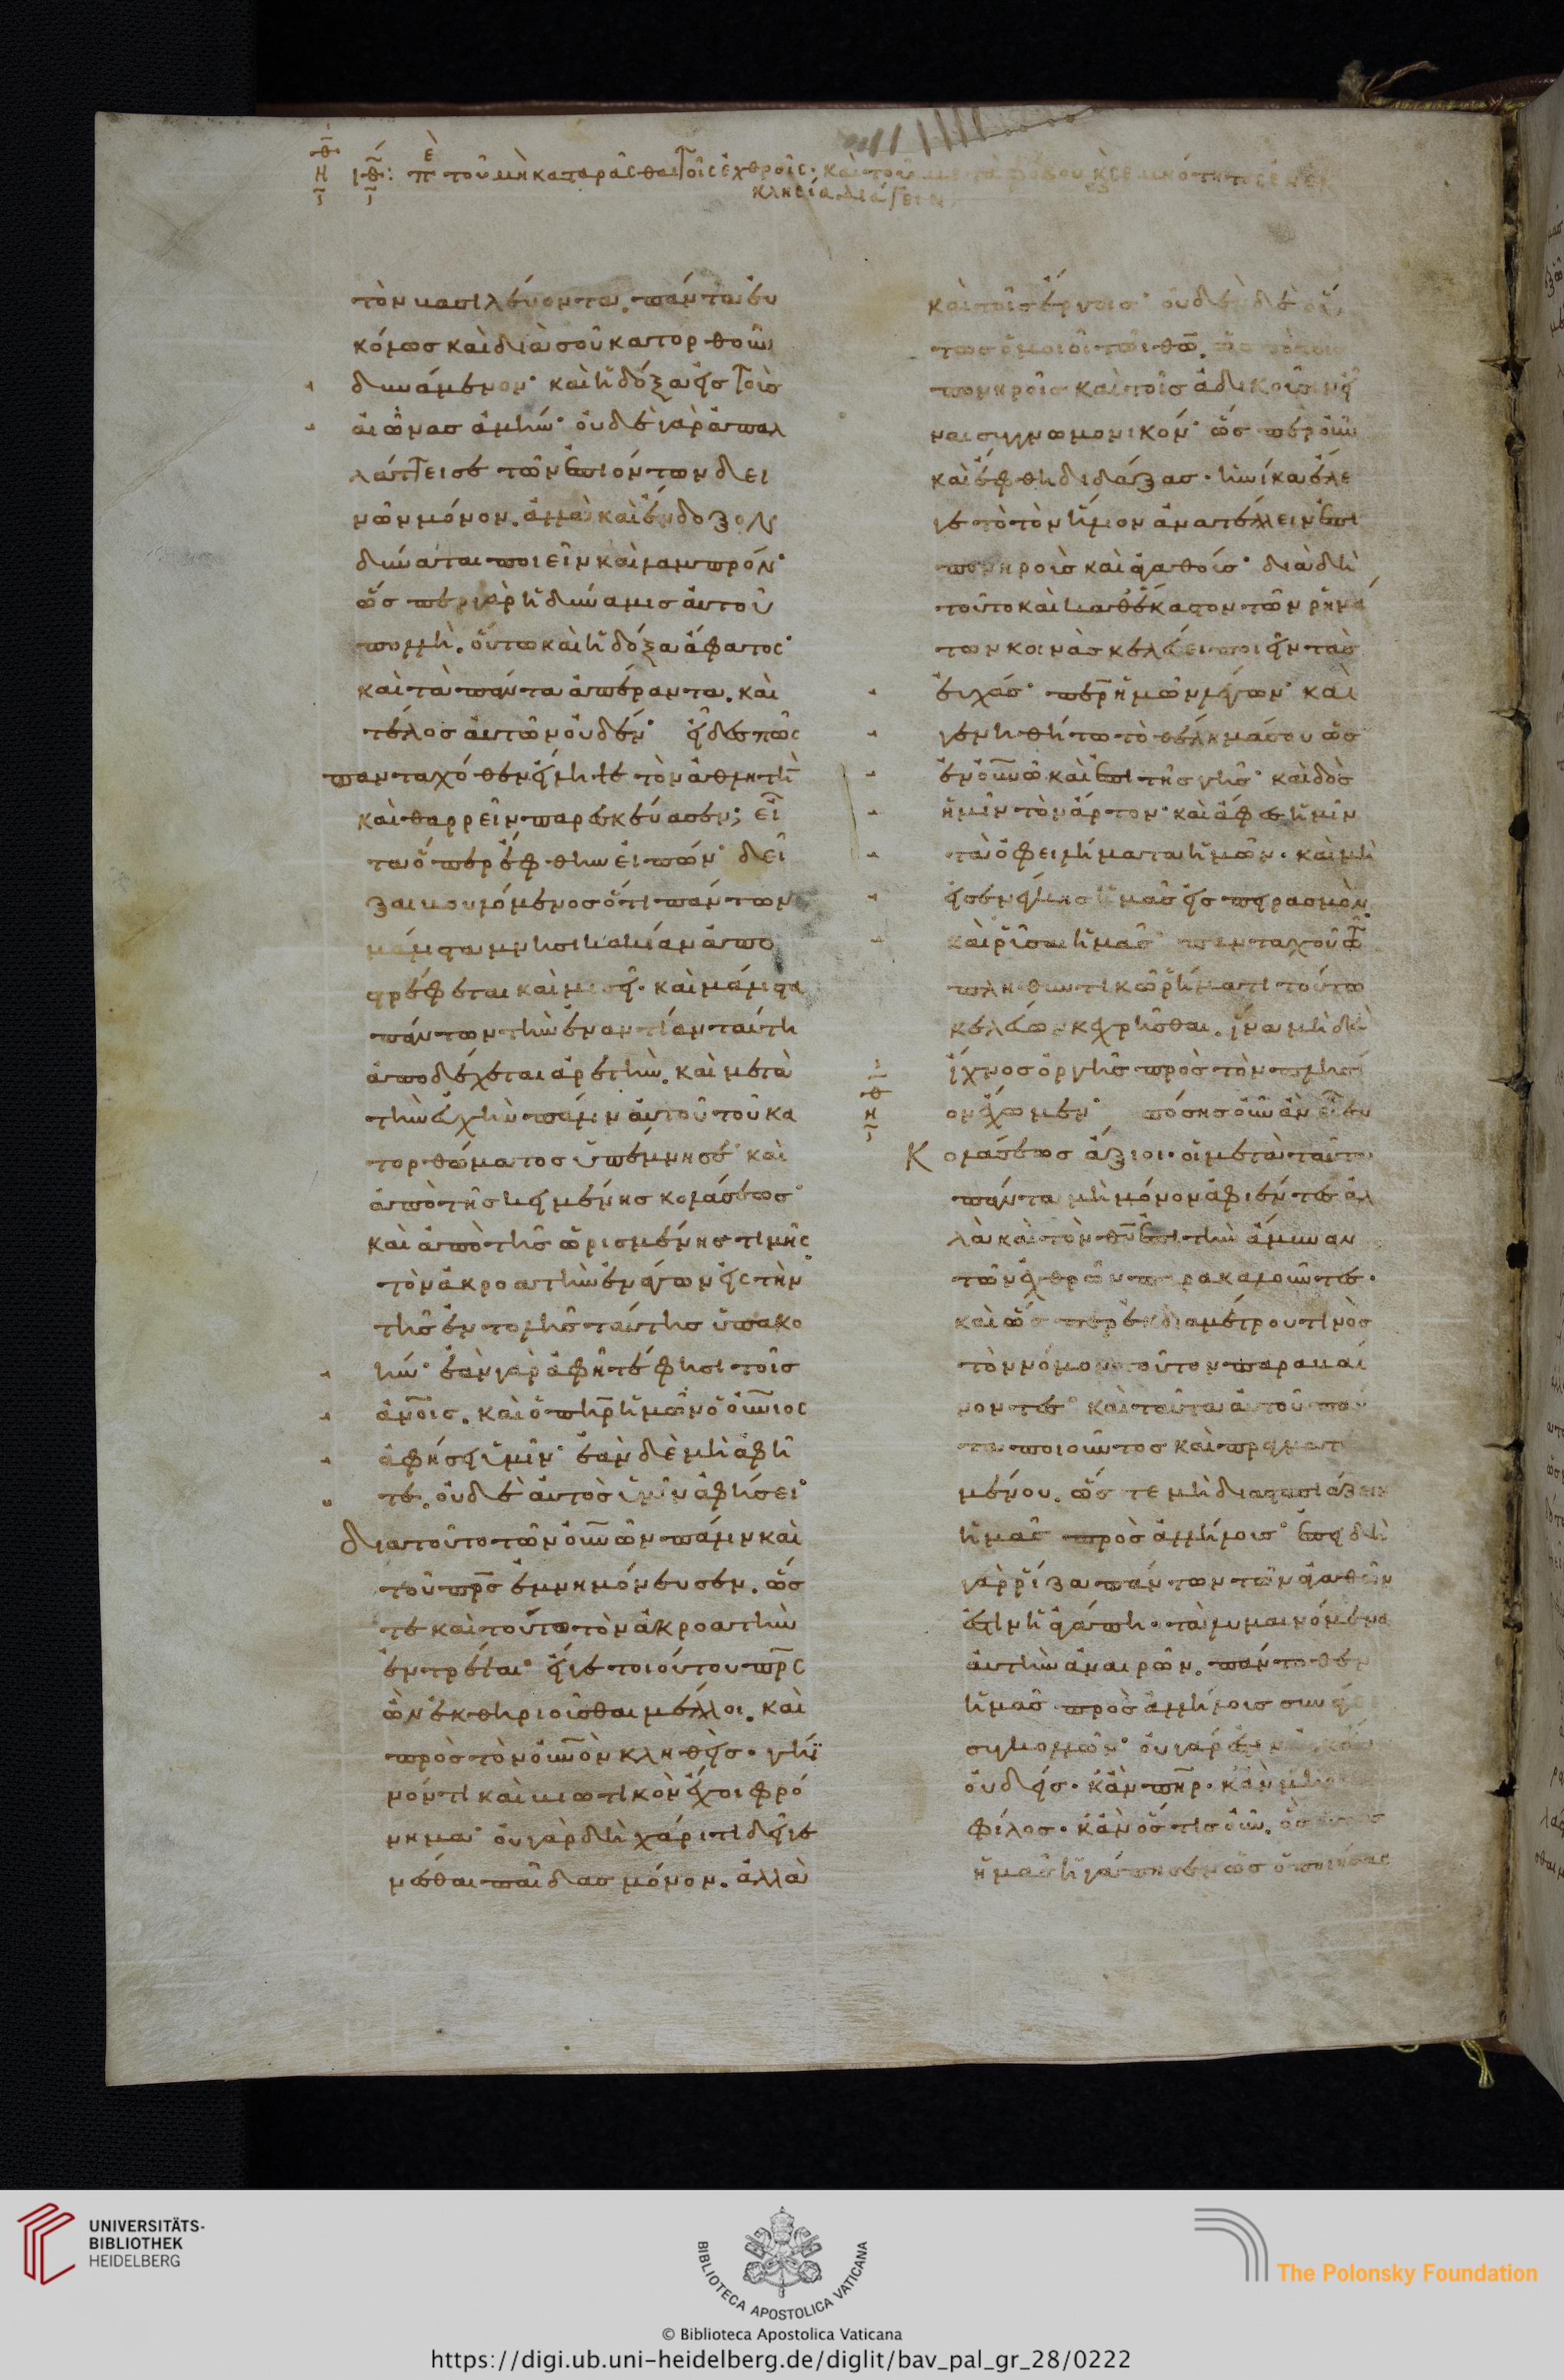 ιθ: π τοῦ μὴ καταρᾶσθαι τοῖς ἐχθροῖς· καὶ τοῦ μετὰ φόβου κ̀ σεμνότητος ἐν ἐκ
κλησία διάγειν
τὸν βασιλεύοντα. πάντα εὐ
κόλως καὶ διὰ σοῦ κατορθοῦν
δυνάμενον· καὶ ἡ δόξα εἰς τοὺς
αἰῶνας ἀμήν· οὐδὲ γὰρ ἀπαλ
λάττει σε τῶν ἐπιόντων δει
νῶν μόνον. ἀλλὰ καὶ ἔνδοξον
δύναται ποιεῖν καὶ λαμπρόν·
ὥσπερ γὰρ ἡ δύναμις αὐτοῦ
πολλὴ. οὕτω καὶ ἡ δόξα ἄφατος·
καὶ τὰ πάντα ἀπέραντα. καὶ
τέλος αὐτῶν οὐδέν· εἶδες πῶς
πανταχόθεν ἤλειψε τὸν ἀθλητὴ
καὶ θαρρεῖν παρεσκεύασεν; εἶ
τα ὅπερ ἔφθην εἰπών· δεῖ
ξαι βουλόμενος ὅτι πάντων
μάλιστα μνησικακίαν ἀπο
στρέφεται καὶ μισεῖ. καὶ μάλιστα
πάντων τὴν ἐναντίαν ταύτη
ἀποδέχεται ἀρετὴν. καὶ μετὰ
τὴν εὐχὴν πάλιν αὐτοῦ τοῦ κα
τορθώματος ὑπέμνησε· καὶ
ἀπὸ τῆς κειμένης κολάσεως·
καὶ ἀπὸ τῆς ὡρισμένης τιμῆς
τὸν ἀκροατὴν ἐνάγων εἰς τὴν
τῆς ἐντολῆς ταύτης ὑπακο
ήν· ἐὰν γὰρ ἀφῆτέ φησι τοῖς
ἀνοις. καὶ ὁ πηρ ἡμῶν ὁ οὐνιος
ἀφήσει ὑμῖν· ἐὰν δὲ μὴ ἀφῆ
τε. οὐδὲ αὐτὸς ὑμῖν ἀφήσει·
διατοῦτο τῶν οὐνῶν πάλιν καὶ
τοῦ πρς ἐμνημόνευσεν. ὥσ
τε καὶ τούτω τὸν ἀκροατὴν
ἐντρέψαι· εἴγε τοιούτου πρς
ὢν ἐκθηριοῦσθαι μέλλοι. καὶ
πρὸς τὸν οὐνὸν κληθεὶς. γήϊ
νόν τι καὶ βιωτικὸν ἔχοι φρό
νημα· οὐ γὰρ δὴ χάριτι δεῖ γε
νέσθαι παῖδας μόνον. ἀλλὰ
καὶ τοῖς ἔργοις· οὐδὲν δὲ οὕ
τως ὁμοιοῖ τῶι θω. ὡς τὸ τοῖς
πονηροῖς καὶ τοῖς ἀδικοῦσιν εἶ
ναι συγγνωμονικόν· ὥσπερ οὖν
καὶ ἔφθη διδάξας. ἡνίκα ἔλε
γε τὸ τὸν ἥλιον ἀνατέλλειν ἐπὶ
πονηροὺς καὶ ἀγαθούς· διὰ δὴ
τοῦτο καὶ καθ' ἕκαστον τῶν ῥημά
των κοινὰς κελεύει ποιεῖν τὰς
εὐχάς· περ ἡμῶν λέγων· καὶ
γενηθήτω τὸ θέλημά σου ὡς
ἐν οὐνῶ καὶ ἐπὶ τῆς γῆς· καὶ δὸς
ἡμῖν τὸν ἄρτον· καὶ ἄφες ἡμῖν
τὰ ὀφειλήματα ἡμῶν. καὶ μὴ
εἰσενέγκης ἡμᾶς εἰς πειρασμὸν.
καὶ ῥῦσαι ἡμᾶς· πανταχοῦ τῶ
πληθυντικῶ ῥήματι τούτω
κελεύων κεχρῆσθαι. ἵνα μὴ δὲ
ἴχνος ὀργῆς πρὸς τὸν πλησί
ον ἔχωμεν· πόσης οὖν ἂν εἶεν
κολάσεως ἄξιοι. οἱ μετὰ ταῦτα
πάντα μὴ μόνον ἀφιέντες ἀλ
λὰ καὶ τὸν θν ἐπὶ τὴν ἄμυναν
τῶν ἐχθρῶν παρακαλοῦντες.
καὶ ὥσπερ ἐκ διαμέτρου τινὸς
τὸν νόμον τοῦτον παραβαί
νοντες· καὶ ταῦτα αὐτοῦ πάν
τα ποιοῦντος καὶ πραγματευ
μένου. ὥστε μὴ διαστασιάζειν
ἡμᾶς πρὸς ἀλλήλους· ἐπειδὴ
γὰρ ῥίζα πάντων τῶν ἀγαθῶν
ἐστὶν ἡ ἀγάπη. τὰ λυμαινόμενα
αὐτὴν ἀναιρῶν. πάντοθεν
ἡμᾶς πρὸς ἀλλήλους συνά
συγκολλῶν· οὐ γάρ ἐστιν
οὐδείς. κἂν πηρ. κἂν
φίλος. κἂν ὅστις οὖν. ὃς οὕτως
ἡμᾶς ἠγάπησεν ὡς ὁ ποιήσας
UNIVERSITÄTS-
BIBLIOTHEK
HEIDELBERG
BIBLIOTECA APOSTOLICA VATICANA
The Polonsky Foundation
© Biblioteca Apostolica Vaticana
https://digi.ub.uni-heidelberg.de/diglit/bav_pal_gr_28/0222